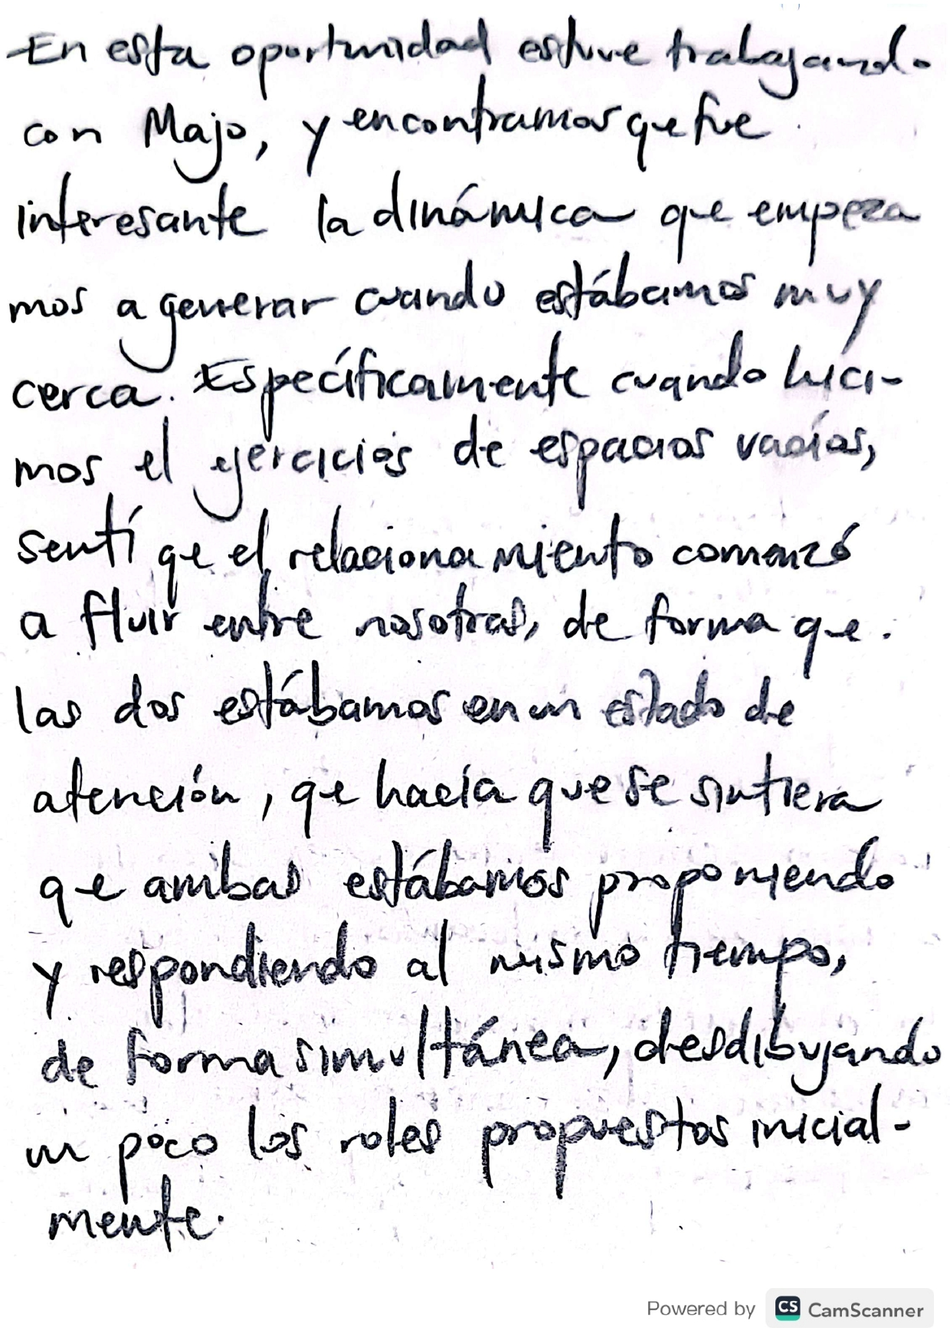 En esta oportunidad estuve trabajando
con Majo, y encontramos que fue
interesante la dinámica que empeza
mos a generar cuando estábamos muy
cerca. Específicamente cuando hici-
mos el ejercicios de espacios vacíos,
sentí que el relacionamiento comenzó
a fluir entre nosotras, de forma que.
las dos estábamos en un estado de
atención, que hacía que se sintiera
que ambas estábamos proponiendo
y respondiendo al mismo tiempo,
de forma simultánea, desdibujando
un poco los roles propuestos inicial-
mente.
Powered by CS CamScanner